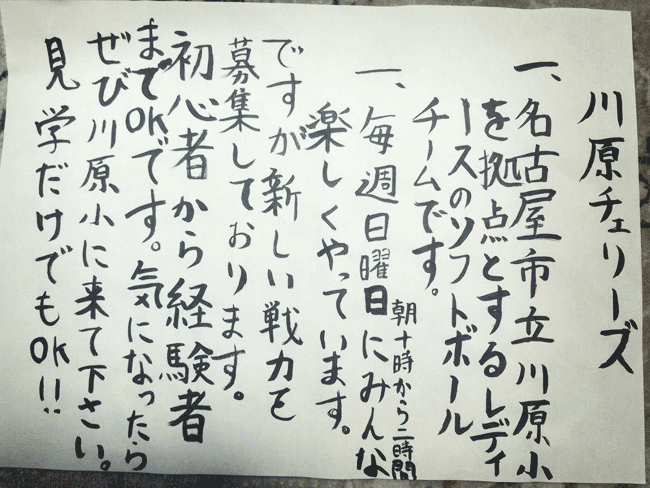 川原チェリーズ
一、名古屋市立川原小
を拠点とするレディ
ースのソフトボール
チームです。
朝十時から二時間
一、毎週日曜日にみんな
楽しくやっています。
ですが新しい戦力を
募集しております。
初心者から経験者
までOKです。気になったら
ぜひ川原小に来て下さい。
見学だけでもOK!!